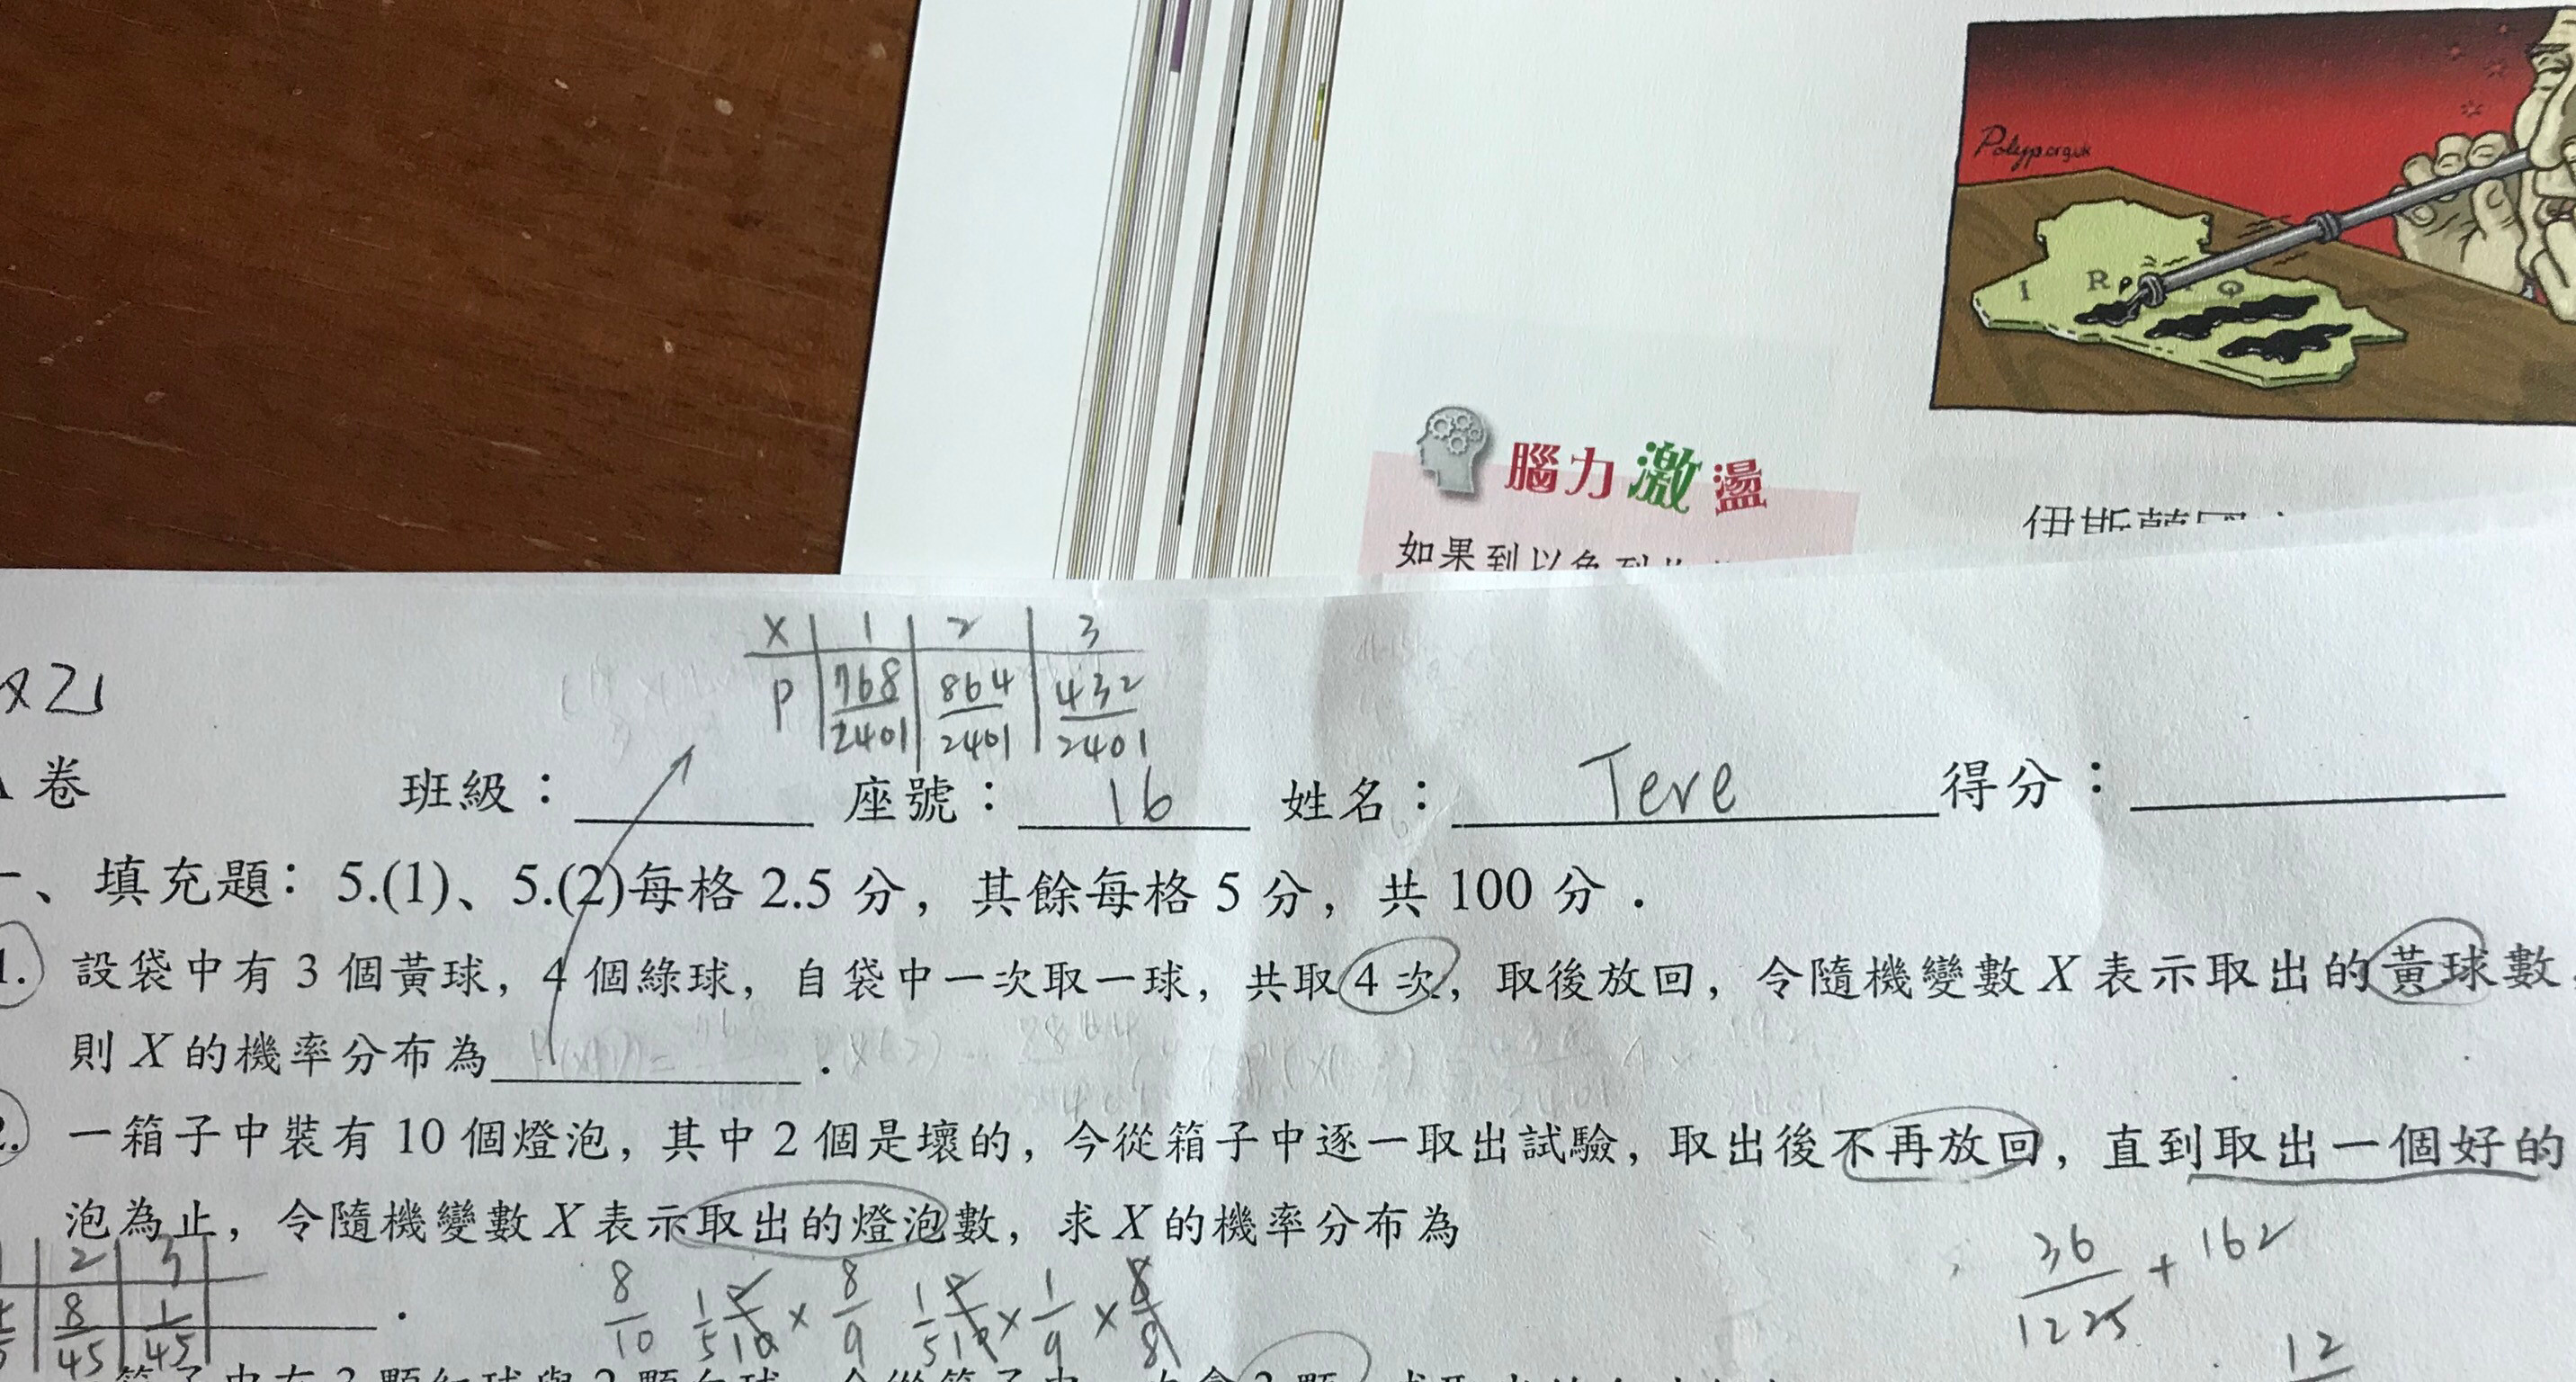 Polyp.org.uk
I R Q
腦力激盪
如果到以色列
伊斯蘭國
X 1 2 3
P 768/2401 864/2401 432/2401
卷 班級：座號：16 姓名：Tere 得分：
一、填充題：5.(1)、5.(2)每格 2.5 分，其餘每格 5 分，共 100 分．
1. 設袋中有 3 個黃球，4 個綠球，自袋中一次取一球，共取 4 次，取後放回，令隨機變數 X 表示取出的黃球數，
則 X 的機率分布為．
2. 一箱子中裝有 10 個燈泡，其中 2 個是壞的，今從箱子中逐一取出試驗，取出後不再放回，直到取出一個好的
泡為止，令隨機變數 X 表示取出的燈泡數，求 X 的機率分布為
36/1225 + 162
2 3
8/45 1/45 ．
8/10 1/5 2/10 × 8/9 1/5 2/10 × 1/9 × 8/8
12